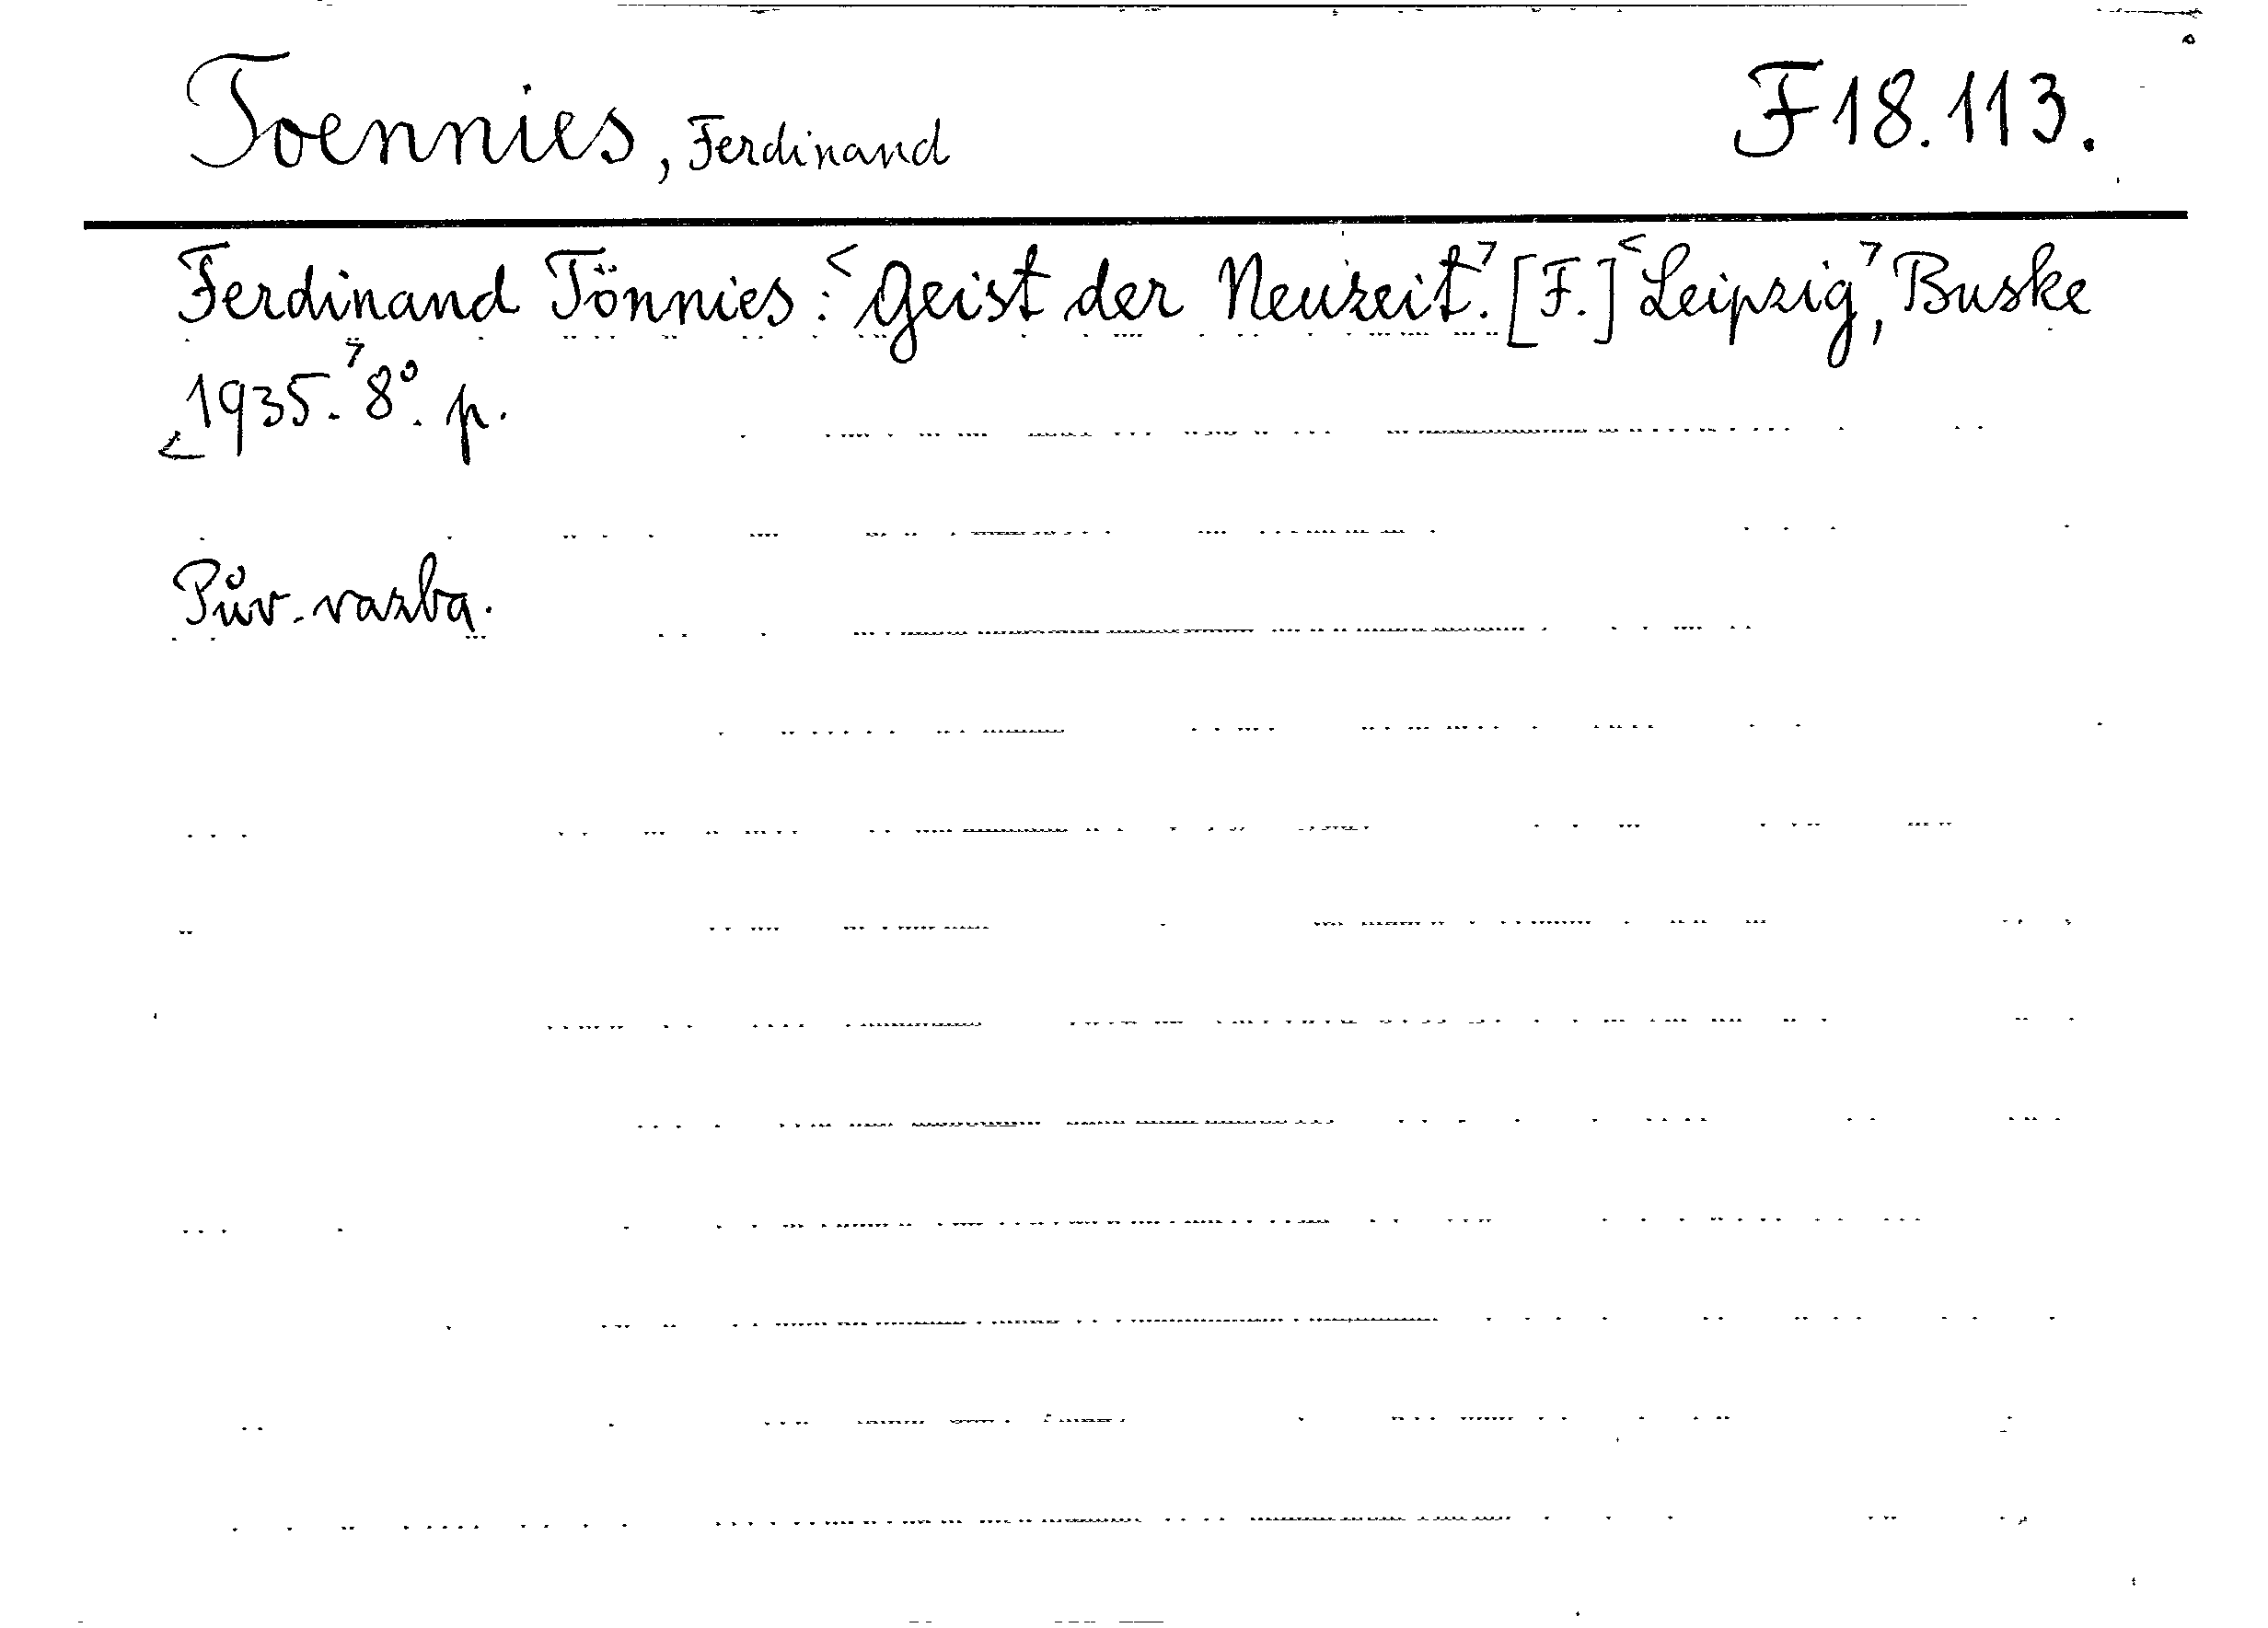 Toennies, Ferdinand F 18.113.
Ferdinand Tönnies: <Geist der Neuzeit.> [F.] <Leipzig>, Buske
<1935.> 8°. p.
Pův. vazba.